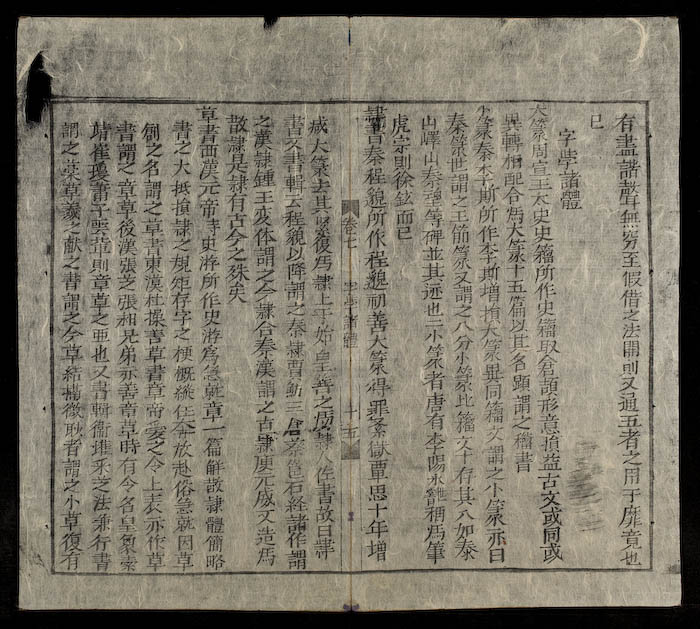 有盡諧聲無窮至假借之法開則又通五者之用于靡竟也
已
字學諸體
大篆周宣王太史史籀所作史籀取倉頡形意損益古文或同或
異轉相配合爲大篆十五篇以其名顯謂之籀書
小篆秦李斯所作李斯增損大篆異同籀文謂之小篆亦曰
秦篆世謂之玉筯篆又謂之八分小篆比籀文十存其八如泰
山嶧山秦望等碑並其遺迹也二小篆者唐有李陽冰雖稱爲筆
虎宗則徐鉉而已
隸書秦程邈所作程邈初善大篆得罪繫獄覃思十年增
卷七
字學諸體
十五
減大篆去其繁復爲隸上于始皇善之所隸人佐書故曰隸
書又書輯云程邈以降謂之秦隸賈魴三倉蔡邕石經諸作謂
之漢隸鍾王変体謂之今隸合秦漢謂之古隸庾元威文造爲
散隸是隸有古今之殊矣
草書西漢元帝時史游所作史游爲急就章一篇解散隸體簡略
書之大抵損隸之規矩存字之梗概縱任奔放赴俗急就因草
創之名謂之草書東漢杜操善草書章帝愛之令上表亦作草
書謂之章草後漢張芝張昶兄弟亦善章草時有今名皇象索
靖崔瑗蕭子雲輩則章草之亜也又書輯衞瓘采芝法兼行書
謂之藁草羲之獻之書謂之今草結構微眇者謂之小草復有